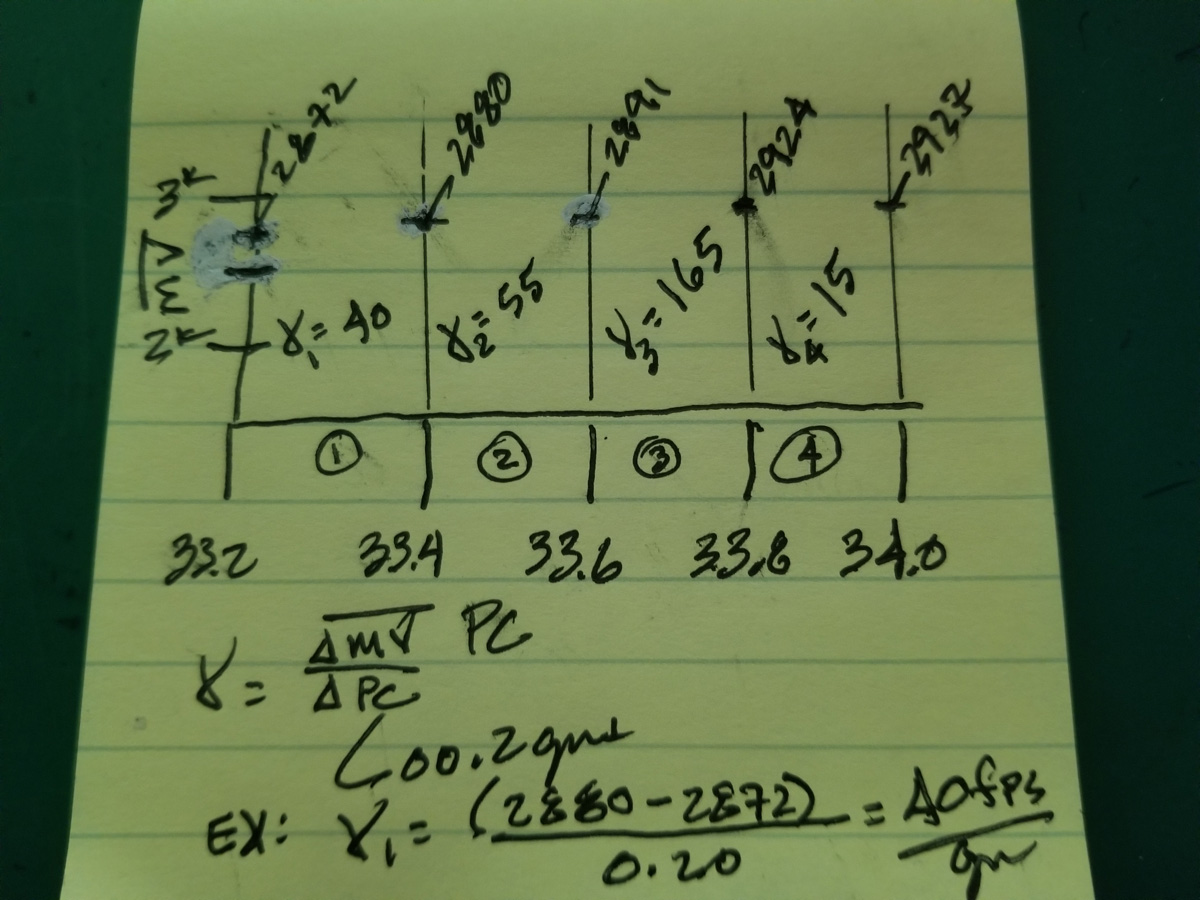 2872 2880 2891 2924 2927
3K
m̅V̅
2K γ₁= 40 γ₂= 55 γ₃= 165 γ₄= 15
① ② ③ ④
33.2 33.4 33.6 33.8 34.0
γ = Δm̅V̅ / ΔPC PC
00.2 grns
EX: γ₁ = (2880 - 2872) / 0.20 = 40 fps / gn